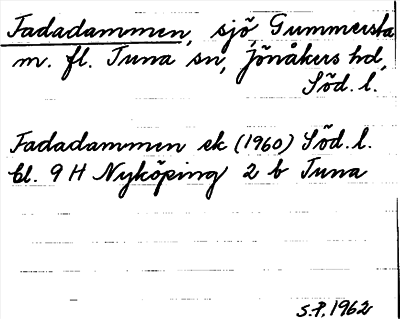 Fadadammen, sjö Gummersta
m. fl. Tuna sn, Jönåkers hd,
Söd. l.
Fadadammen ek (1960) Söd. l.
bl. 9 H Nyköping 2 b Tuna
S.P. 1962